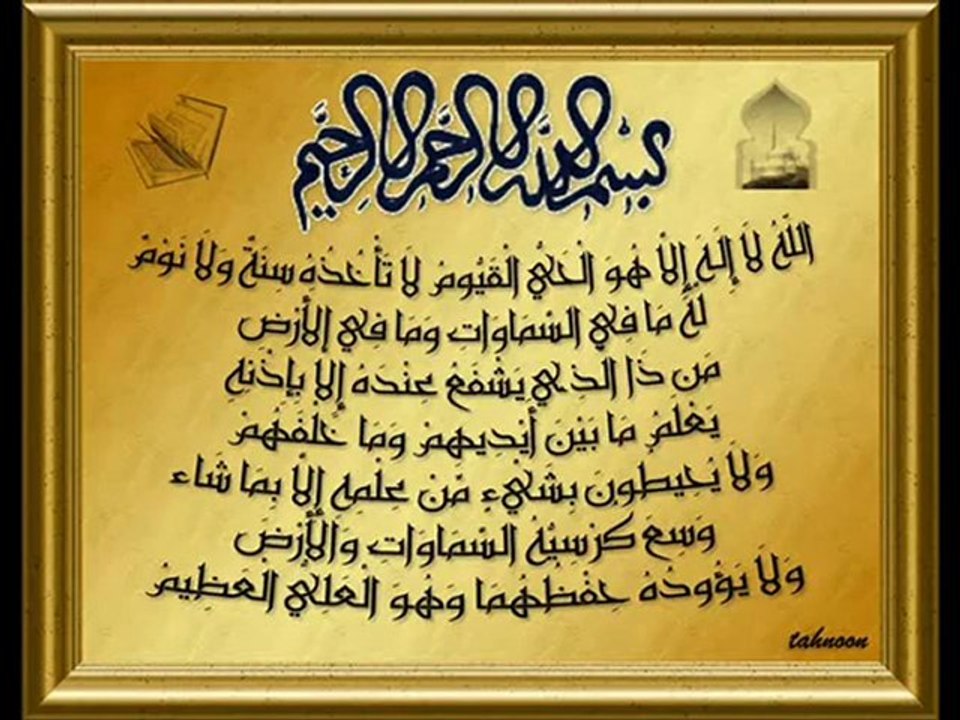 بسم الله الرحمن الرحيم
اللَّهُ لاَ إِلَهَ إِلاَّ هُوَ الْحَيُّ الْقَيُّومُ لاَ تَأْخُذُهُ سِنَةٌ وَلاَ نَوْمٌ
لَّهُ مَا فِي السَّمَاوَاتِ وَمَا فِي الأَرْضِ
مَن ذَا الَّذِي يَشْفَعُ عِنْدَهُ إِلاَّ بِإِذْنِهِ
يَعْلَمُ مَا بَيْنَ أَيْدِيهِمْ وَمَا خَلْفَهُمْ
وَلاَ يُحِيطُونَ بِشَيْءٍ مِّنْ عِلْمِهِ إِلاَّ بِمَا شَاء
وَسِعَ كُرْسِيُّهُ السَّمَاوَاتِ وَالأَرْضَ
وَلاَ يَؤُودُهُ حِفْظُهُمَا وَهُوَ الْعَلِيُّ الْعَظِيمُ
tahnoon